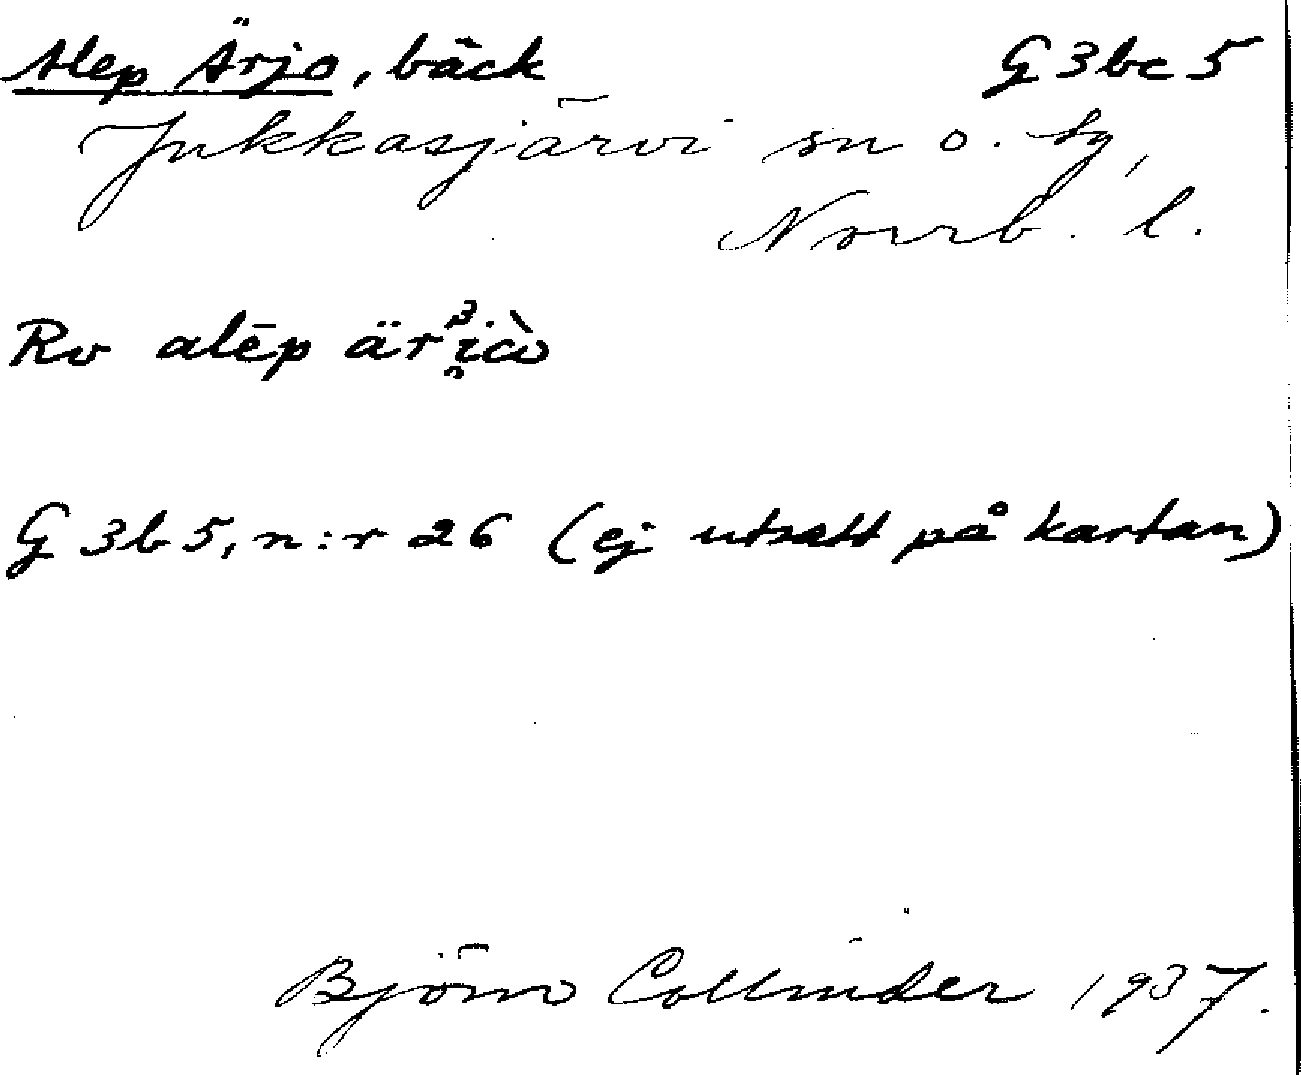 Alep Ärjo, bäck G 3bc 5
Jukkasjärvi sn o. tg,
Norrb. l.
Rv alēp
G 3b 5, n:r 26 (ej utsatt på kartan)
Björn Collinder 1937.